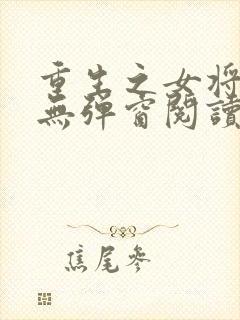 重生之女将
無彈窗閱讀
焦尾參